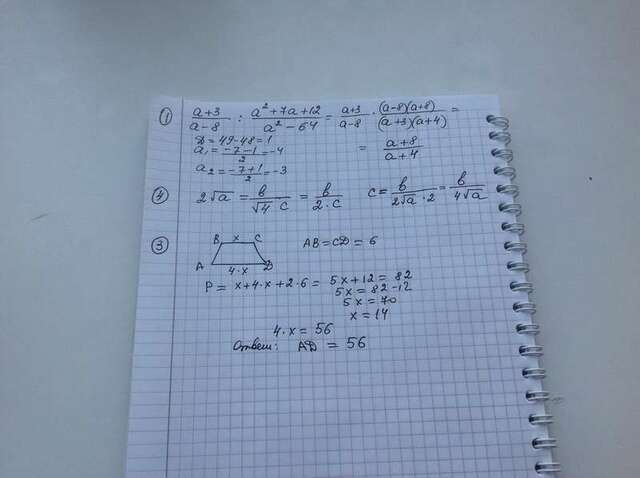 ① (a+3)/(a-8) : (a²+7a+12)/(a²-64) = (a+3)/(a-8) · (a-8)(a+8)/(a+3)(a+4) =
D = 49-48 = 1
a₁ = (-7-1)/2 = -4
= (a+8)/(a+4)
a₂ = (-7+1)/2 = -3
④ 2√a = b/(√4 · c) = b/(2·c) c = b/(2√a · 2) = b/(4√a)
③ B x C AB = CD = 6
A 4·x D
P = x+4·x+2·6 = 5x+12 = 82
5x = 82-12
5x = 70
x = 14
4·x = 56
Ответ: AD = 56